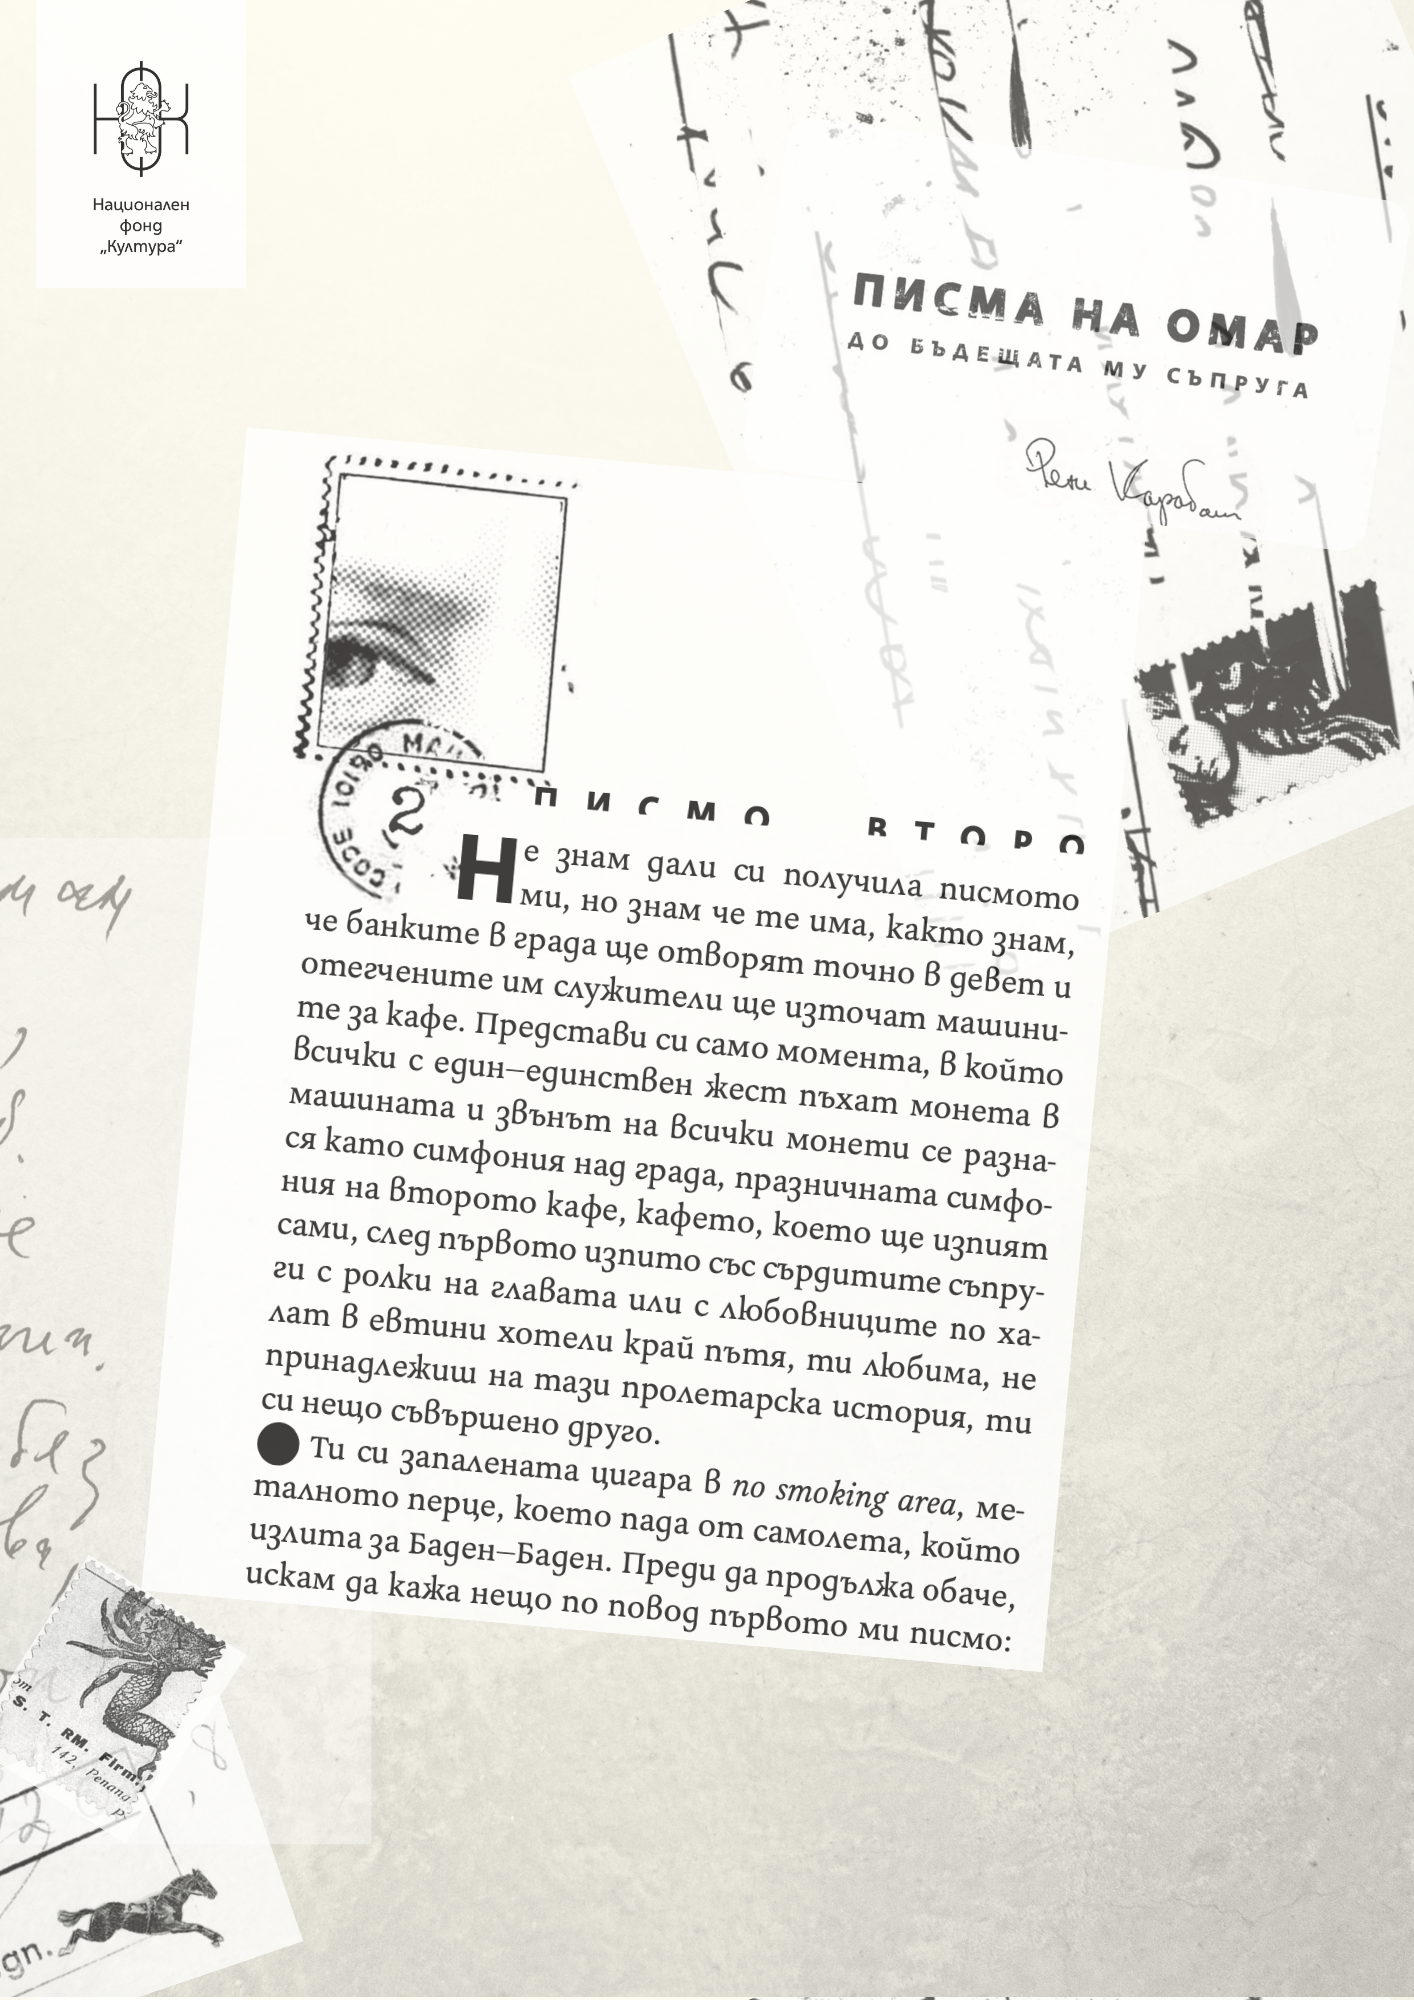 Национален
фонд
„Култура“
ПИСМА НА ОМАР
ДО БЪДЕЩАТА МУ СЪПРУГА
Рени Карабаш
CODE 10190
2
ПИСМО ВТОРО
Не знам дали си получила писмото
ми, но знам че те има, както знам,
че банките в града ще отворят точно в девет и
отегчените им служители ще източат машини-
те за кафе. Представи си само момента, в който
всички с един–единствен жест пъхат монета в
машината и звънът на всички монети се разна-
ся като симфония над града, празничната симфо-
ния на второто кафе, кафето, което ще изпият
сами, след първото изпито със сърдитите съпру-
ги с ролки на главата или с любовниците по ха-
лат в евтини хотели край пътя, ти любима, не
принадлежиш на тази пролетарска история, ти
си нещо съвършено друго.
Ти си запалената цигара в no smoking area, ме-
талното перце, което пада от самолета, който
излита за Баден–Баден. Преди да продължа обаче,
искам да кажа нещо по повод първото ми писмо:
S. T. RM. Firm.
142, Penang
gn.